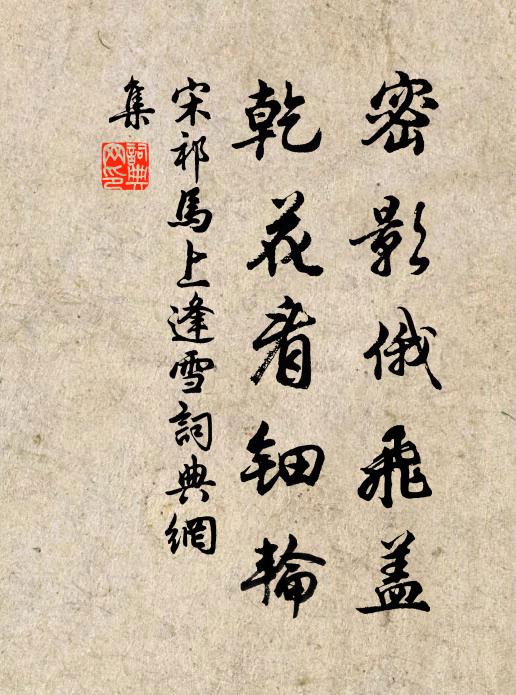 密影俄飛蓋
乾花看鈿輪
宋祁馬上逢雪詞典網
集
詞典
网印